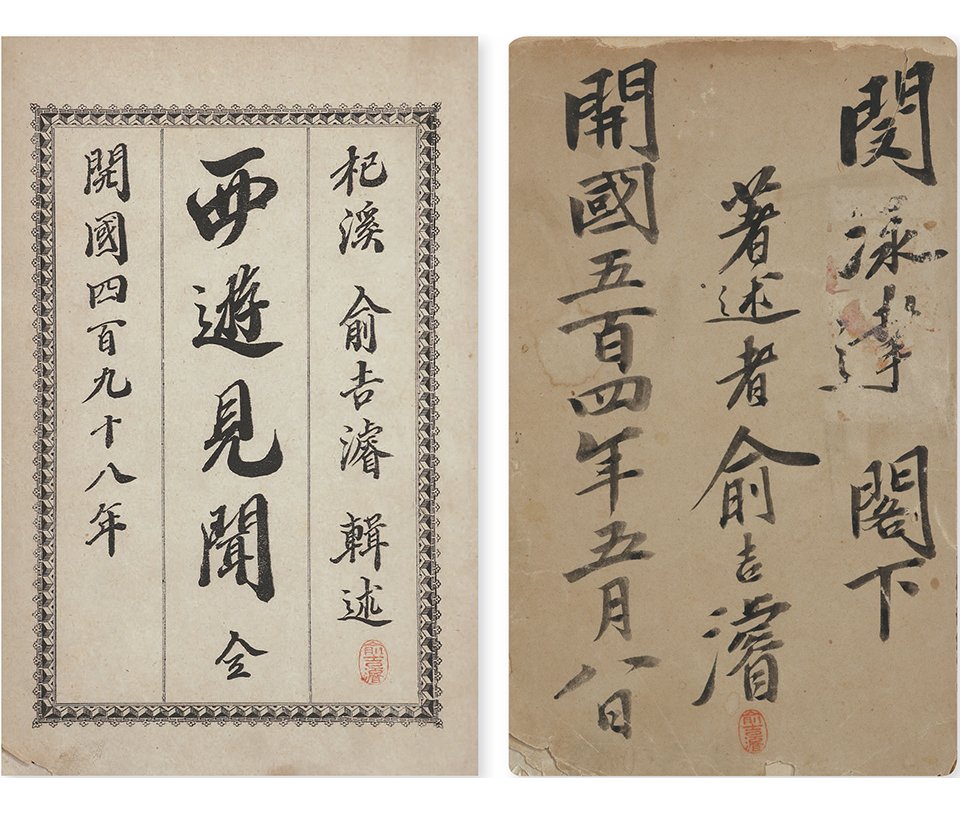 杞溪 兪吉濬 輯述
兪吉濬
西遊見聞 全
開國四百九十八年
閔泳達 閣下
著述者 兪吉濬
兪吉濬
開國五百四年五月八日